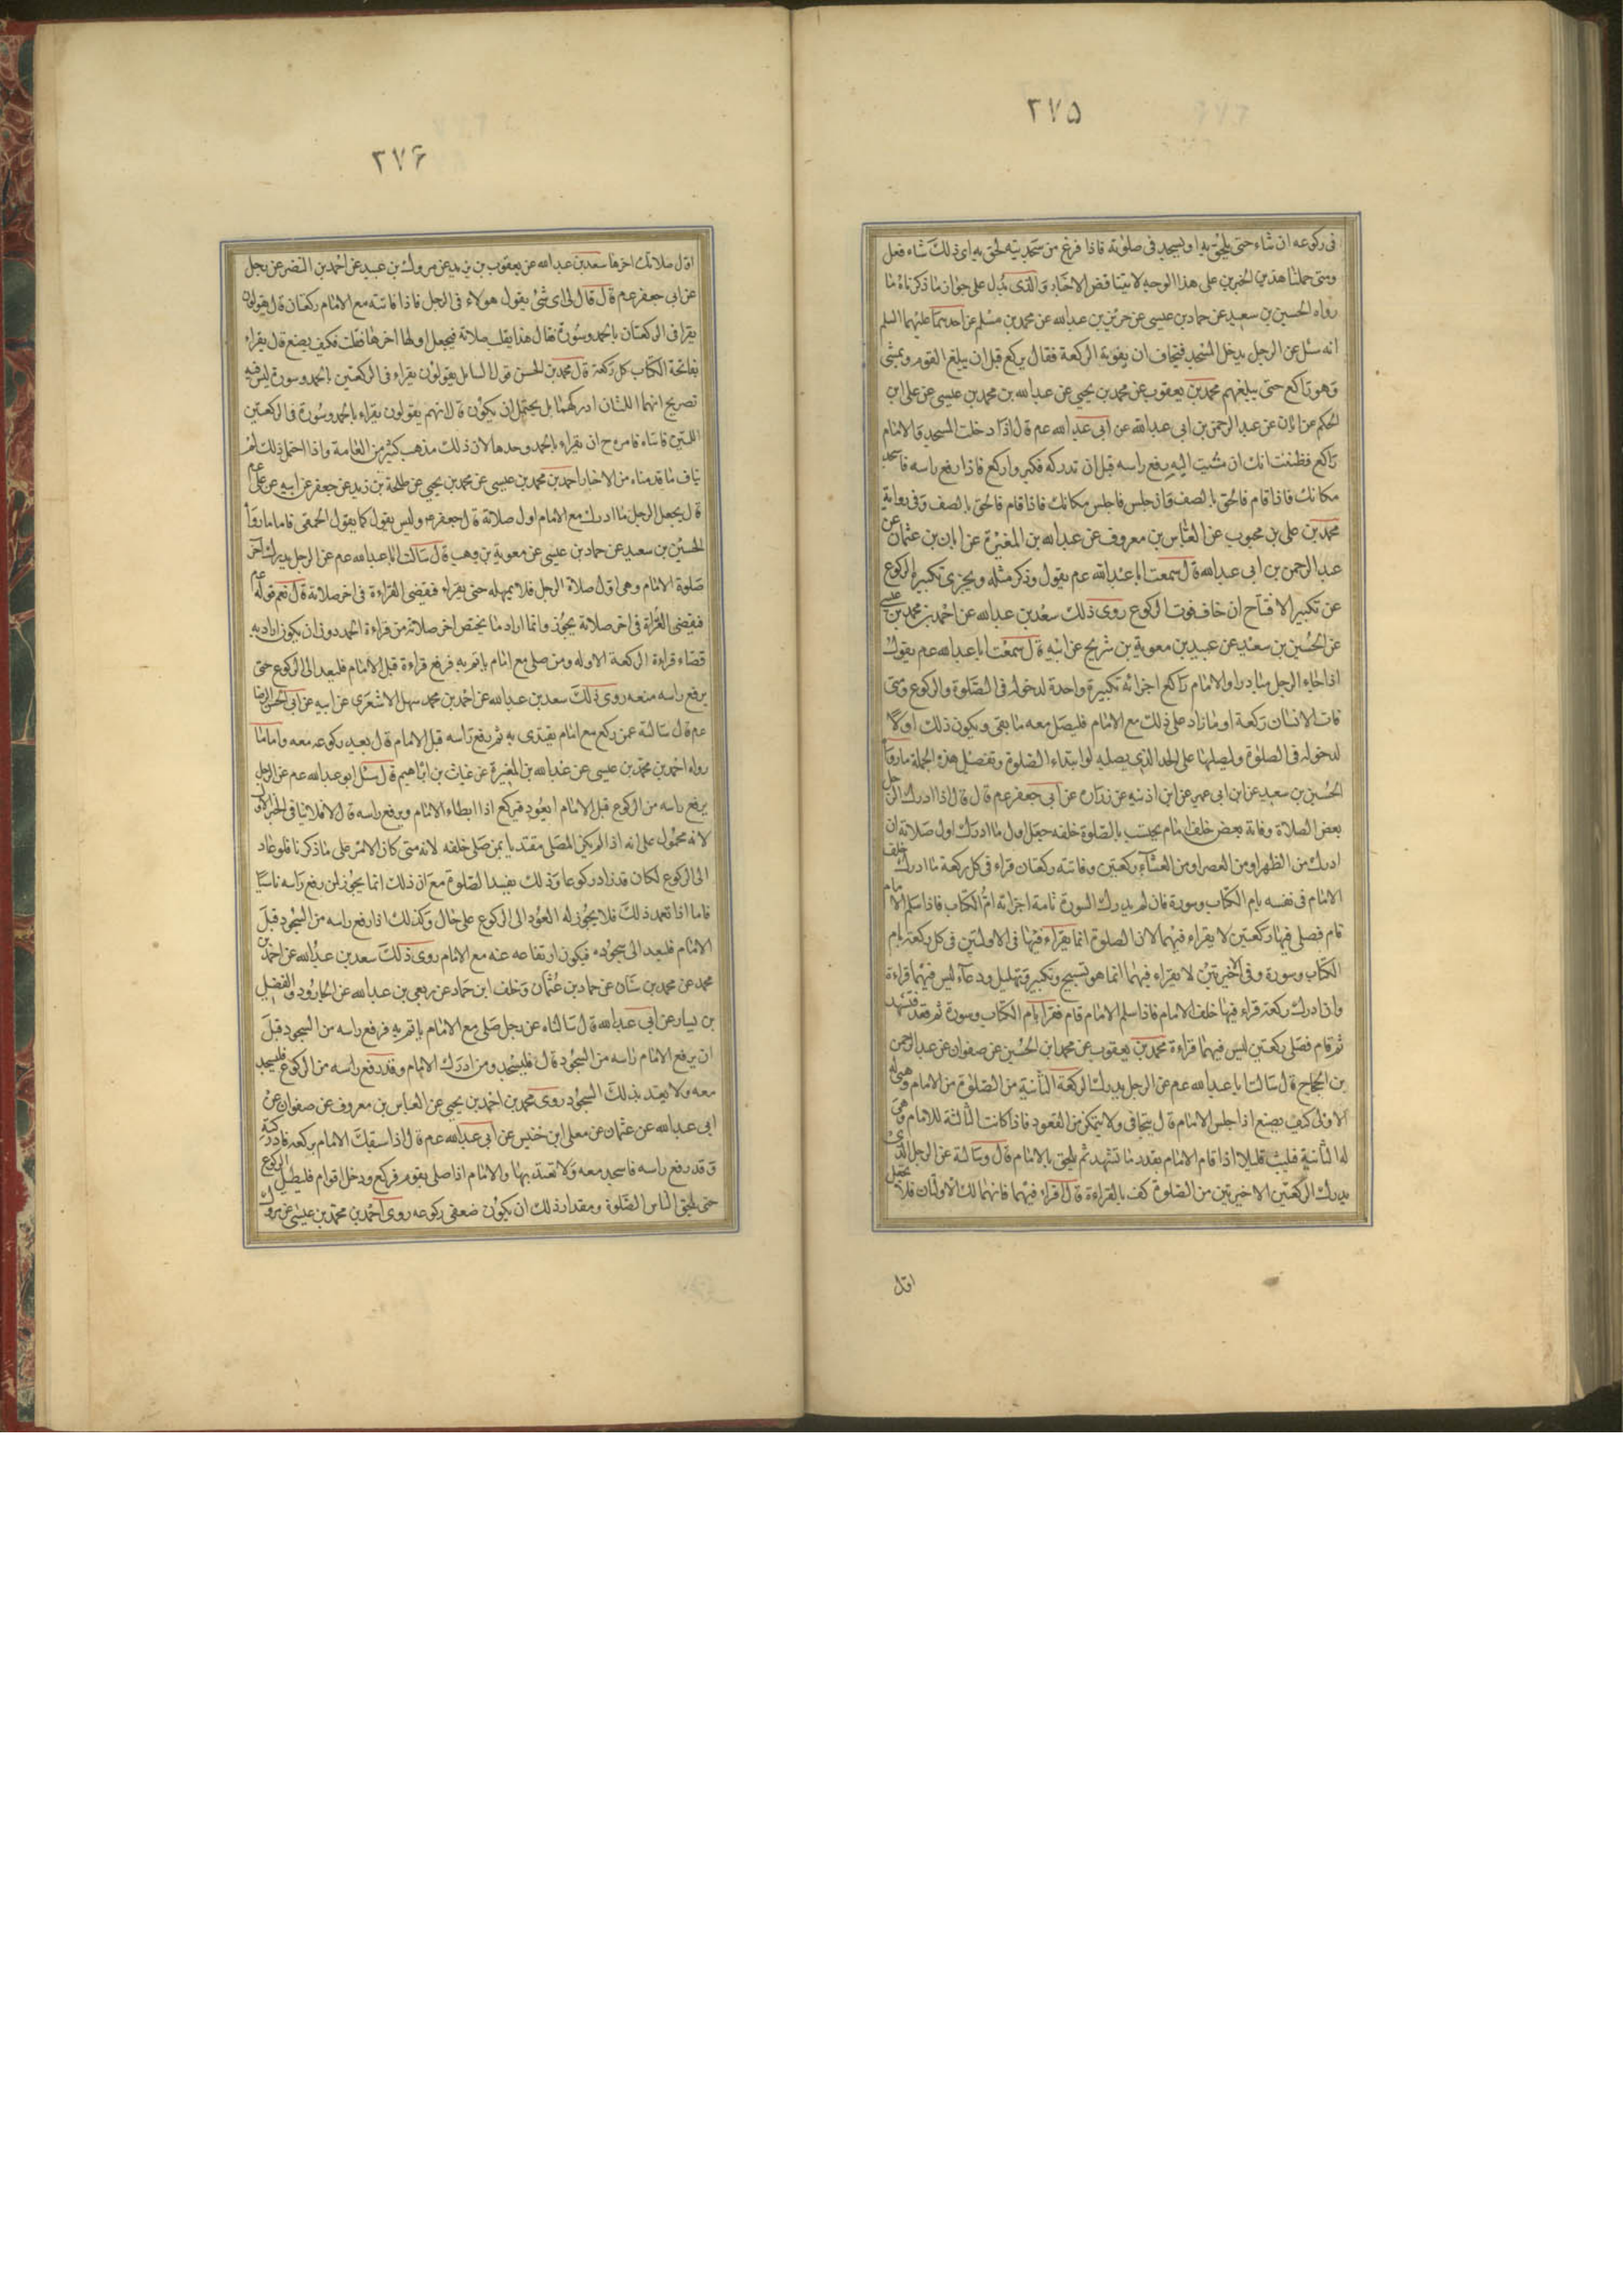 ٢٧۵
فى ركوعه ان شاء حتى يلحق به او يسجد فى صلوته فاذا فرغ من سجدتيه لحق به اى ذلك شاء فعل
ومتى حملنا هذين الخبرين على هذا الوجه لا يتناقض الاخبار والذى يدل على جواز ما ذكرناه ما
رواه الحسين بن سعيد عن حماد بن عيسى عن حريز بن عبدالله عن محمد بن مسلم عن احدهما عليهما السلم
انه سئل عن الرجل يدخل المسجد فيخاف ان يفوته الركعة فقال يركع قبل ان يبلغ القوم ويمشى
وهو راكع حتى يبلغهم محمد بن يعقوب عن محمد بن يحيى عن عبدالله بن محمد بن عيسى عن على ابن
الحكم عن ابان عن عبد الرحمن بن ابى عبدالله عن ابى عبدالله عم قال اذا دخلت المسجد والامام
راكع فظننت انك ان مشيت اليه رفع راسه قبل ان تدركه فكبر واركع فاذا رفع راسه فاسجد
مكانك فاذا قام فالحق بالصف فان جلس فاجلس مكانك فاذا قام فالحق بالصف وفى رواية
محمد بن على بن محبوب عن العباس بن معروف عن عبدالله بن المغيرة عن ابان بن عثمان عن
عبد الرحمن بن ابى عبدالله قال سمعت ابا عبدالله عم يقول وذكر مثله ويجزى تكبيرة الركوع
عن تكبير الافتتاح ان خاف فوت الركوع روى ذلك سعد بن عبدالله عن احمد بن محمد بن عيسى
عن الحسين بن سعيد عن عبيد بن معوية بن شريح عن ابيه قال سمعت ابا عبدالله عم يقول
اذا جاء الرجل مبادرا والامام راكع اجزائه تكبيرة واحدة لدخوله فى الصلوة والركوع ومتى
فات الانسان ركعة او ما زاد على ذلك مع الامام فليصل معه ما بقى ويكون ذلك اولا
لدخوله فى الصلوة وليصلها على الحد الذى يصليه لو ابتداء الصلوة وتفصيل هذه الجملة ما رواه
الحسين بن سعيد عن ابن ابى عمير عن ابن اذنيه عن زراره عن ابى جعفر عم قال قال اذا ادرك الرجل
بعض الصلاة وفاته بعض خلف امام يحتسب بالصلوة خلفه جعل اول ما ادرك اول صلاته ان
ادرك من الظهر او من العصر او من العشاء ركعتين وفاتته ركعتان قراء فى كل ركعة مما ادرك خلف
الامام فى نفسه بام الكتاب وسورة فان لم يدرك السورة تامة اجزاته ام الكتاب فاذا سلم الامام
قام فصلى فيها ركعتين لا يقراء فيهما لان الصلوة انما يقراء فيها فى الاوليتين فى كل ركعة بام
الكتاب وسورة وفى الاخيرتين لا يقراء فيهما انما هو تسبيح وتكبير وتهليل ودعاء ليس فيهما قراءة
واذا درك ركعة قراء فيها خلف الامام فاذا سلم الامام قام فقرا بام الكتاب وسورة ثم قعد فتشهد
ثم قام فصلى ركعتين ليس فيهما قراءة محمد بن يعقوب عن محمد ابن الحسين عن صفوان عن عبد الرحمن
بن الحجاج قال سالت ابا عبدالله عم عن الرجل يدرك الركعة الثانية من الصلوة من الامام وهى له
الاولى كيف يصنع اذا جلس الامام قال يتجافى ولا يتمكن من القعود فاذا كانت الثالثة للامام وهى
له الثانية فليلبث قليلا اذا قام الامام بقدر ما تشهد ثم يلحق بالامام قال وسالته عن الرجل الذى
يدرك الركعتين الاخيرتين من الصلوة كيف بالقراءة قال اقراء فيهما فانهما لك الاولتان فلا تجعل
اول
٢٧۶
اول صلاتك اخرها سعد بن عبدالله عن يعقوب بن يزيد عن مروك بن عبيد عن احمد بن النضر عن رجل
عن ابى جعفر عم قال قال لى اى شئ يقول هولاء فى الرجل فاذا فاتته مع الامام ركعتان قال يقولون
يقرا فى الركعتان بالحمد وسورة فقال هذا يقلب صلاته فيجعل اولها اخرها قلت فكيف يصنع قال يقراء
بفاتحة الكتاب كل ركعة قال محمد بن الحسن قول السايل يقولون يقراء فى الركعتين بالحمد وسورة ليس فيه
تصريح انهما اللتان ادركهما بل يحتمل ان يكون قال انهم يقولون يقراء بالحمد وسورة فى الركعتين
اللتين فاتتاه فامره ح ان يقراء بالحمد وحدها لان ذلك مذهب كثير من العامة واذا احتمل ذلك لم
يناف ما قدمناه من الاخبار احمد بن محمد بن عيسى عن محمد بن يحيى عن طلحة بن زيد عن جعفر عن ابيه عن على عم
قال يجعل الرجل ما ادرك مع الامام اول صلاته قال جعفر عم وليس يقول كما يقول الحمقى فاما ما رواه
الحسين بن سعيد عن حماد بن عيسى عن معوية بن وهب قال سالت ابا عبدالله عم عن الرجل يدرك آخر
صلوة الامام وهى اول صلاة الرجل فلا يمهله حتى يقراء فيقضى القراءة فى اخر صلاته قال نعم قوله عم
فيقضى القراة فى اخر صلاته يجوز وانما اراد ما يختص اخر صلاته من قراءة الحمد دون ان يكون اراد به
قضاء قراءة الركعة الاوله ومن صلى مع امام ياتم به فرفع قراءة قبل الامام فليعد الى الركوع حتى
يرفع راسه منعه روى ذلك سعد بن عبدالله عن احمد بن محمد سهل الاشعرى عن ابيه عن ابى الحسن الرضا
عم قال سالته عمن ركع مع امام يقتدى به ثم رفع راسه قبل الامام قال يعيد ركوعه معه واما ما
رواه احمد بن محمد بن عيسى عن عبدالله بن المغيرة عن غياث بن ابراهيم قال سئل ابو عبدالله عم عن الرجل
يرفع راسه من الركوع قبل الامام ايعود فيركع اذا ابطاء الامام ويرفع راسه قال لا فلا ينافى الخبر الاول
لانه محمول على انه اذا لم يكن المصلى مقتديا بمن صلى خلفه لانه متى كان الامر على ما ذكرنا فلو عاد
الى الركوع لكان قد زاد ركوعا وذلك يفسد الصلوة مع ان ذلك انما يجوز لمن رفع راسه ناسيا
فاما اذا تعمد ذلك فلا يجوز له العود الى الركوع على حال وكذلك اذا رفع راسه من السجود قبل
الامام فليعد الى سجوده فيكون ارتفاعه عنه مع الامام روى ذلك سعد بن عبدالله عن احمد بن
محمد عن محمد بن سنان عن حماد بن عثمان وخلف ابن حماد عن ربعى بن عبدالله عن الجارود والفضيل
بن يسار عن ابى عبدالله قال سالناه عن رجل صلى مع الامام ياتم به فرفع راسه من السجود قبل
ان يرفع الامام راسه من السجود قال فليسجد ومن ادرك الامام وقد رفع راسه من الركوع فليسجد
معه ولا يعتد بذلك السجود روى محمد بن احمد بن يحيى عن العباس بن معروف عن صفوان عن
ابى عبدالله عن عثمان عن معلى ابن خنيس عن ابى عبدالله عم قال اذا سبقك الامام بركعة فادركته
وقد رفع راسه فاسجد معه ولا تعتد بها والامام اذا صلى بقوم فركع ودخل اقوام فليطيل الركوع
حتى يلحق الناس الصلوة ومقدار ذلك ان يكون ضعفى ركوعه روى احمد بن محمد بن عيسى عن مروك